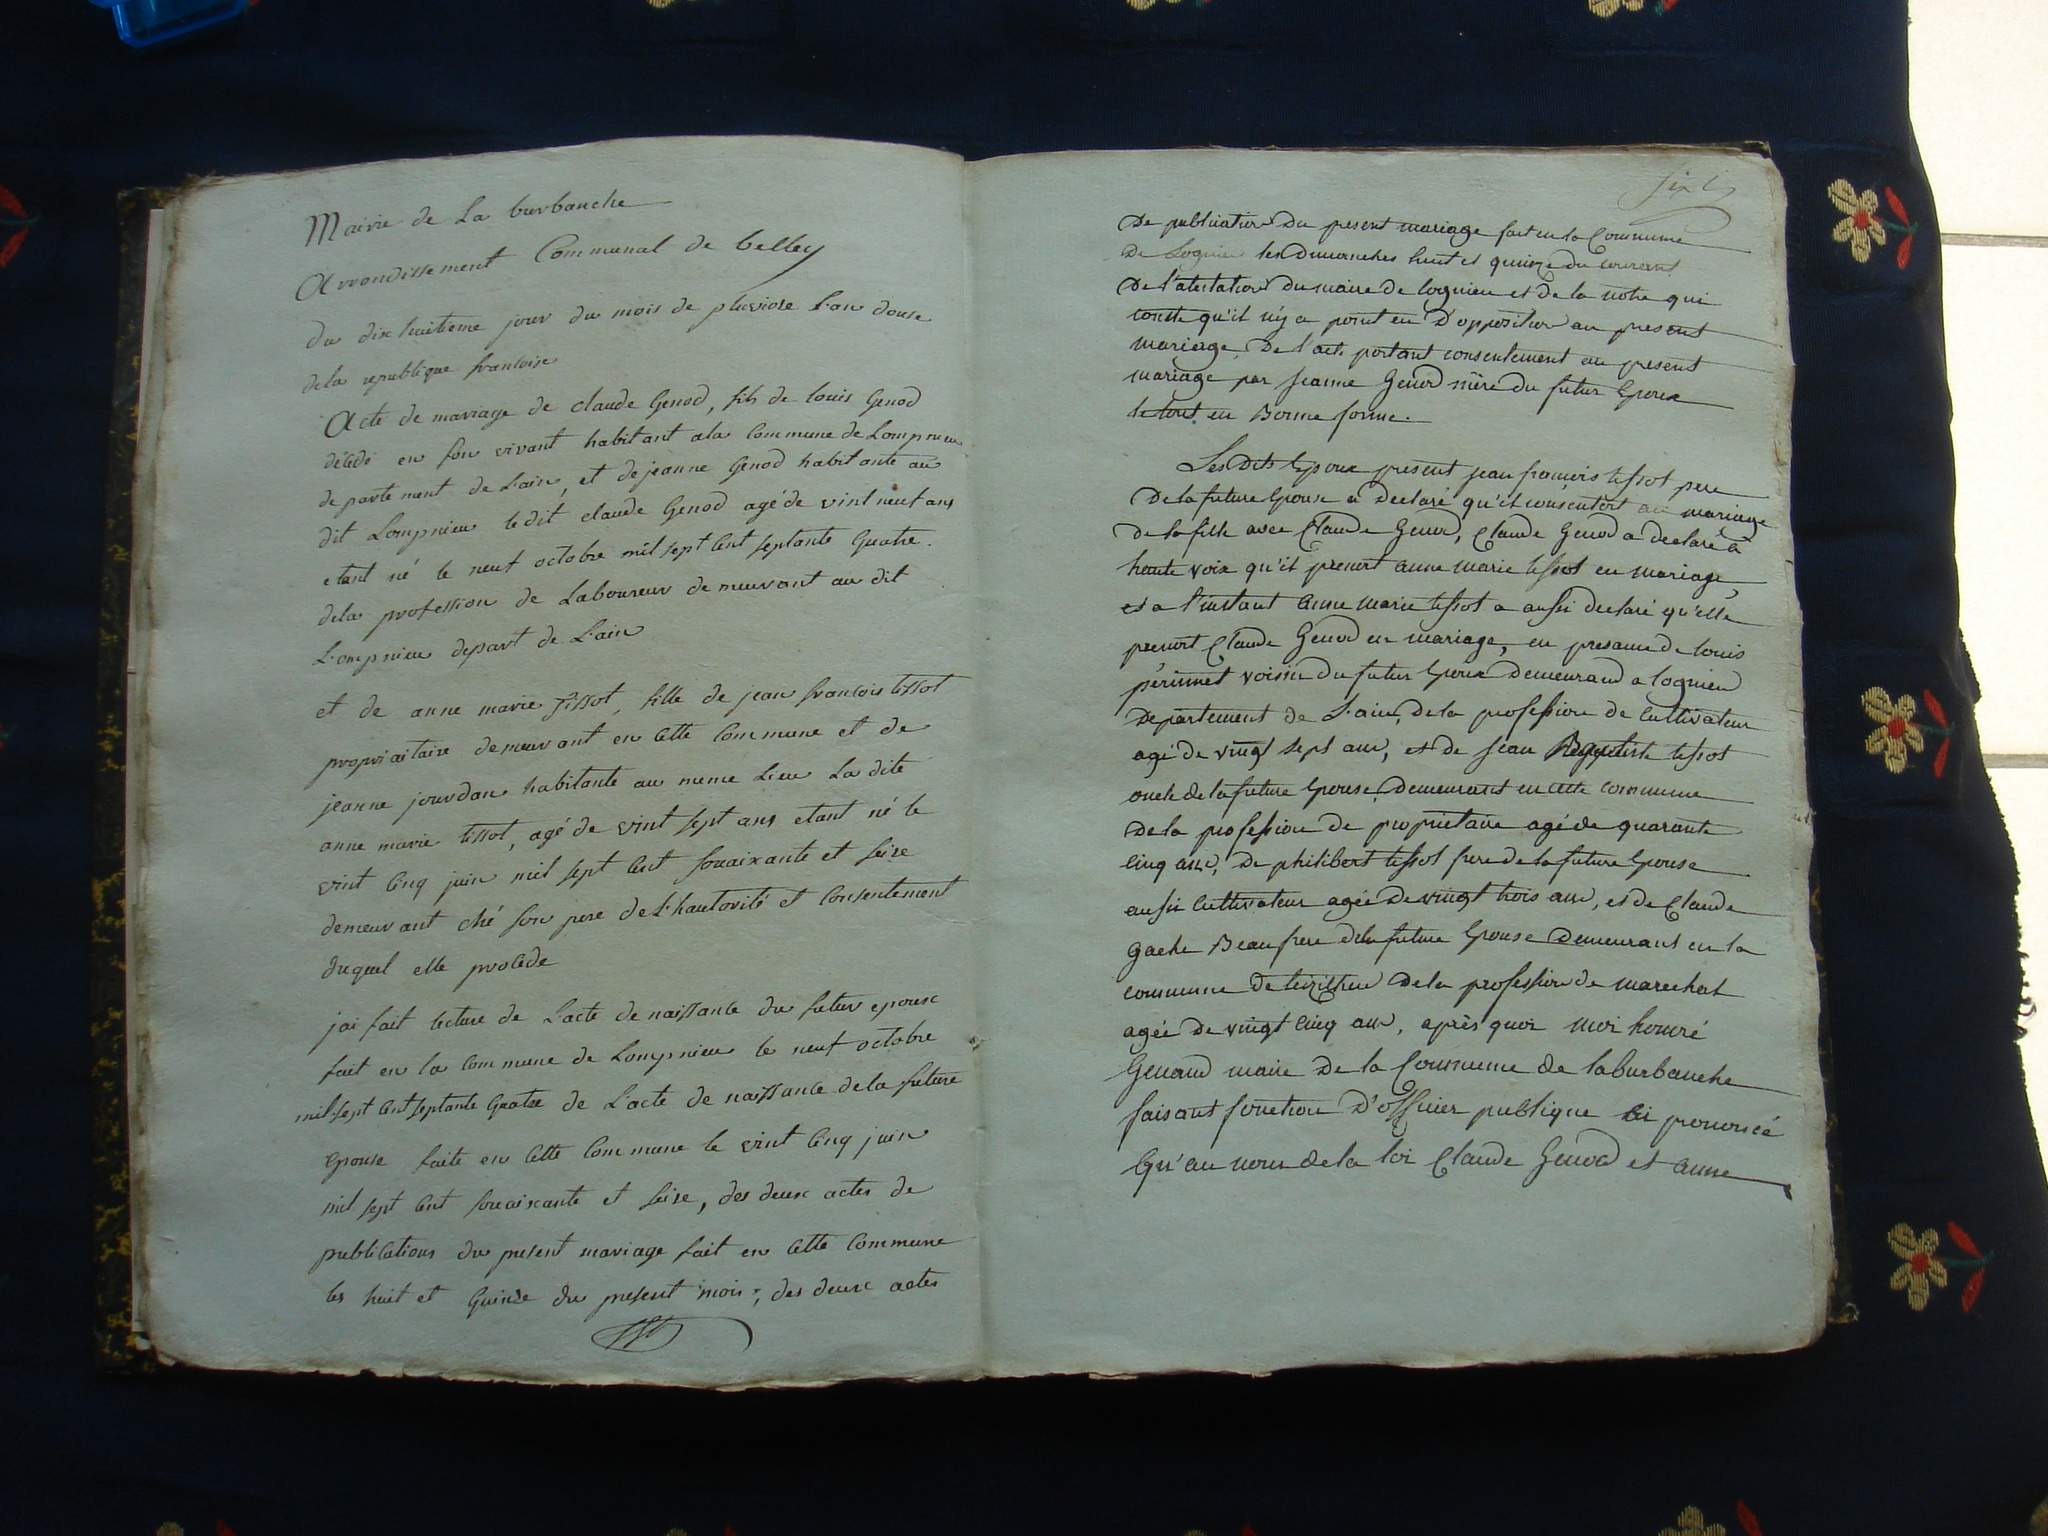 Mairie de La burbanche
Arrondissement Communal de belley
du dix huitieme jour du mois de pluviose L'an douse
dela republique francoise
Acte de mariage de claude Genod, fils de louis Genod
décédé en son vivant habitant ala Commune de Lompnieu
departement de L'ain, et de jeanne Genod habitante au
dit Lompnieu le dit claude Genod agé de vint neuf ans
etant né le neuf octobre mil sept Cent septante Quatre
dela profession de Laboureur demeurant au dit
Lompnieu depart de L'ain
et de anne marie tissot, fille de jean francois tissot
propriaitaire demeurant en Cette Commune et de
jeanne jourdan habitante au meme Lieu La dite
anne marie tissot, agé de vint sept ans etant né le
vint Cinq juin mil sept Cent souaixante et seise
demeurant ché son pere de L'hautorité et Consentement
duquel elle procede
jai fait lecture de L'acte de naissance du futur epoux
fait en la Commune de Lompnieu le neuf octobre
mil sept Cent septante Quatre de L'acte de naissance de la future
epouse faite en Cette Commune le vint Cinq juin
mil sept Cent souaixante et seise, des deux actes de
publications du present mariage fait en Cette Commune
les huit et Quinse du present mois, des deux actes
De publication Du present mariage fait en la Commune
De Lognieu les Dimanches huit et quinze du courant
De l'atestation Du maire de lognieu et de la notre qui
conste qu'il n'y a point eu D'opposition au present
mariage, De l'acte portant consentement au present
mariage par jeanne Genod mère du futur Epoux
le tout en Bonne forme.
Les Dits Epoux present jean françois tessot pere
De la future Epouse a Declaré qu'il consentoit au mariage
De la fille avec Claude Genod, Claude Genod a declaré à
haute voix qu'il prenoit anne marie tessot en mariage
et a l'instant anne marie tessot a aussi declaré qu'elle
prenoit Claude Genod en mariage, en presance de louis
périnnet voisin du futur Epoux Demeurand a lognieu
Departement de L'ain, de la profession de Cultivateur
agé de vingt sept ans, et de jean Baptiste tessot
oncle de la future Epouse, Demeurant en cette commune
De la profession de proprietaire agé de quarante
Cinq ans, De philibert tessot frere de la future Epouse
aussi Cultivateur agée De vingt trois ans, et de Claude
Gache Beaufrere dela future Epouse Demeurant en la
commune de De la profession de marechal
agée de vingt Cinq ans, après quoi moi honoré
Genand maire De la Commune de laburbanche
faisant fonction D'officier publique ai prononcé
Qu'au nom de la loi Claude Genod et anne